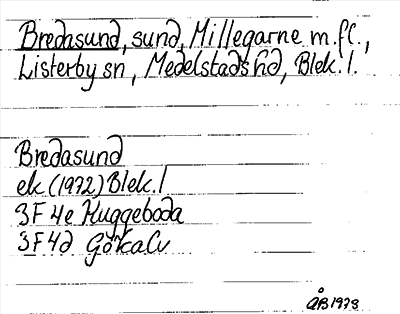 Bredasund, sund, Millegarne m.fl.,
Listerby sn, Medelstads hd, Blek. l.
Bredasund
ek (1972) Blek. l
3F 4e Kuggeboda
3F 4d Göhalv
ÅB 1978